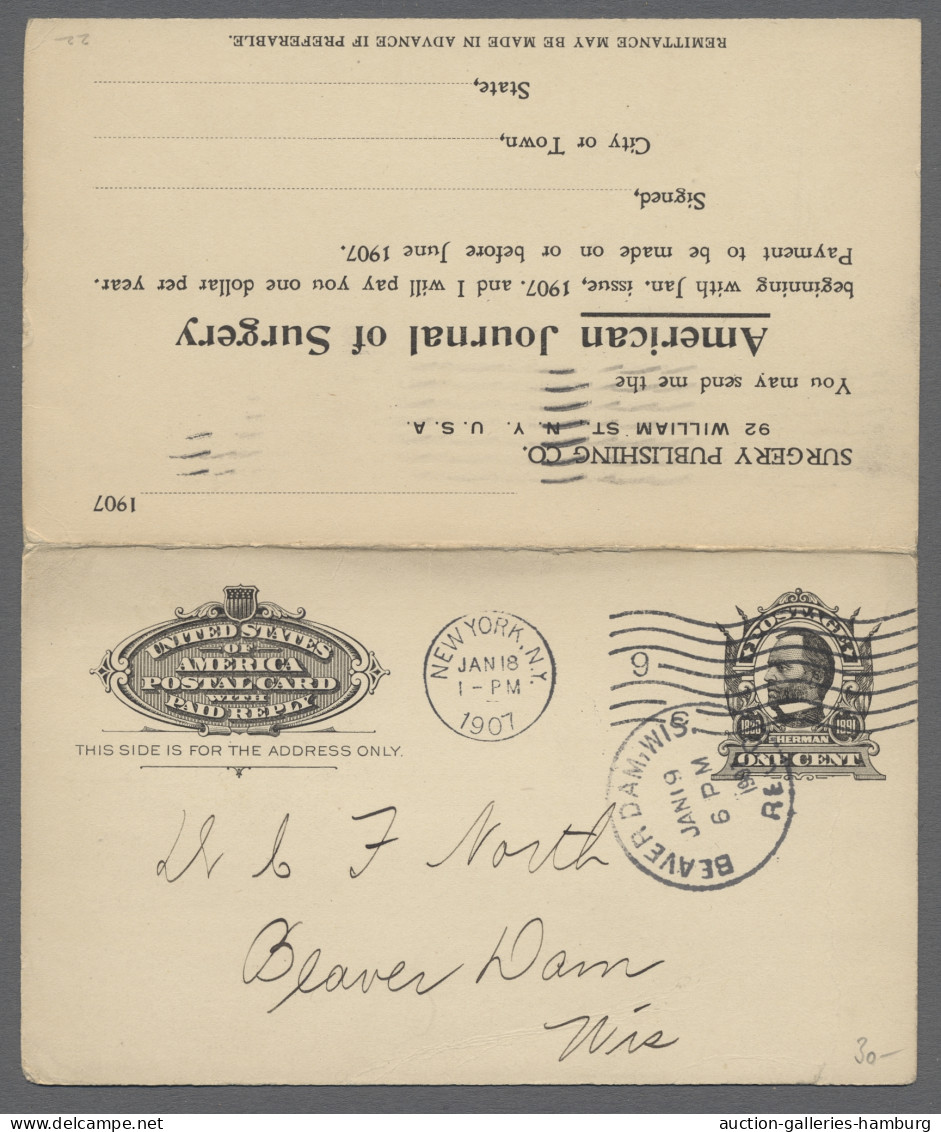 1907
SURGERY PUBLISHING CO.
92 WILLIAM ST. N. Y. U. S. A.
You may send me the
American Journal of Surgery
beginning with Jan. issue, 1907. and I will pay you one dollar per year.
Payment to be made on or before June 1907.
Signed,
City or Town,
State,
REMITTANCE MAY BE MADE IN ADVANCE IF PREFERABLE.
22-
UNITED STATES
OF
AMERICA
POSTAL CARD
WITH
PAID REPLY
THIS SIDE IS FOR THE ADDRESS ONLY.
NEW YORK, N.Y.
JAN 18
1 - PM
1907
9
POSTAGE
1823 1891
SHERMAN
ONE CENT
BEAVER DAM, WIS.
JAN 19
6 PM
1907
Dr C F North
Beaver Dam
Wis
30-
auction-galleries-hamburg